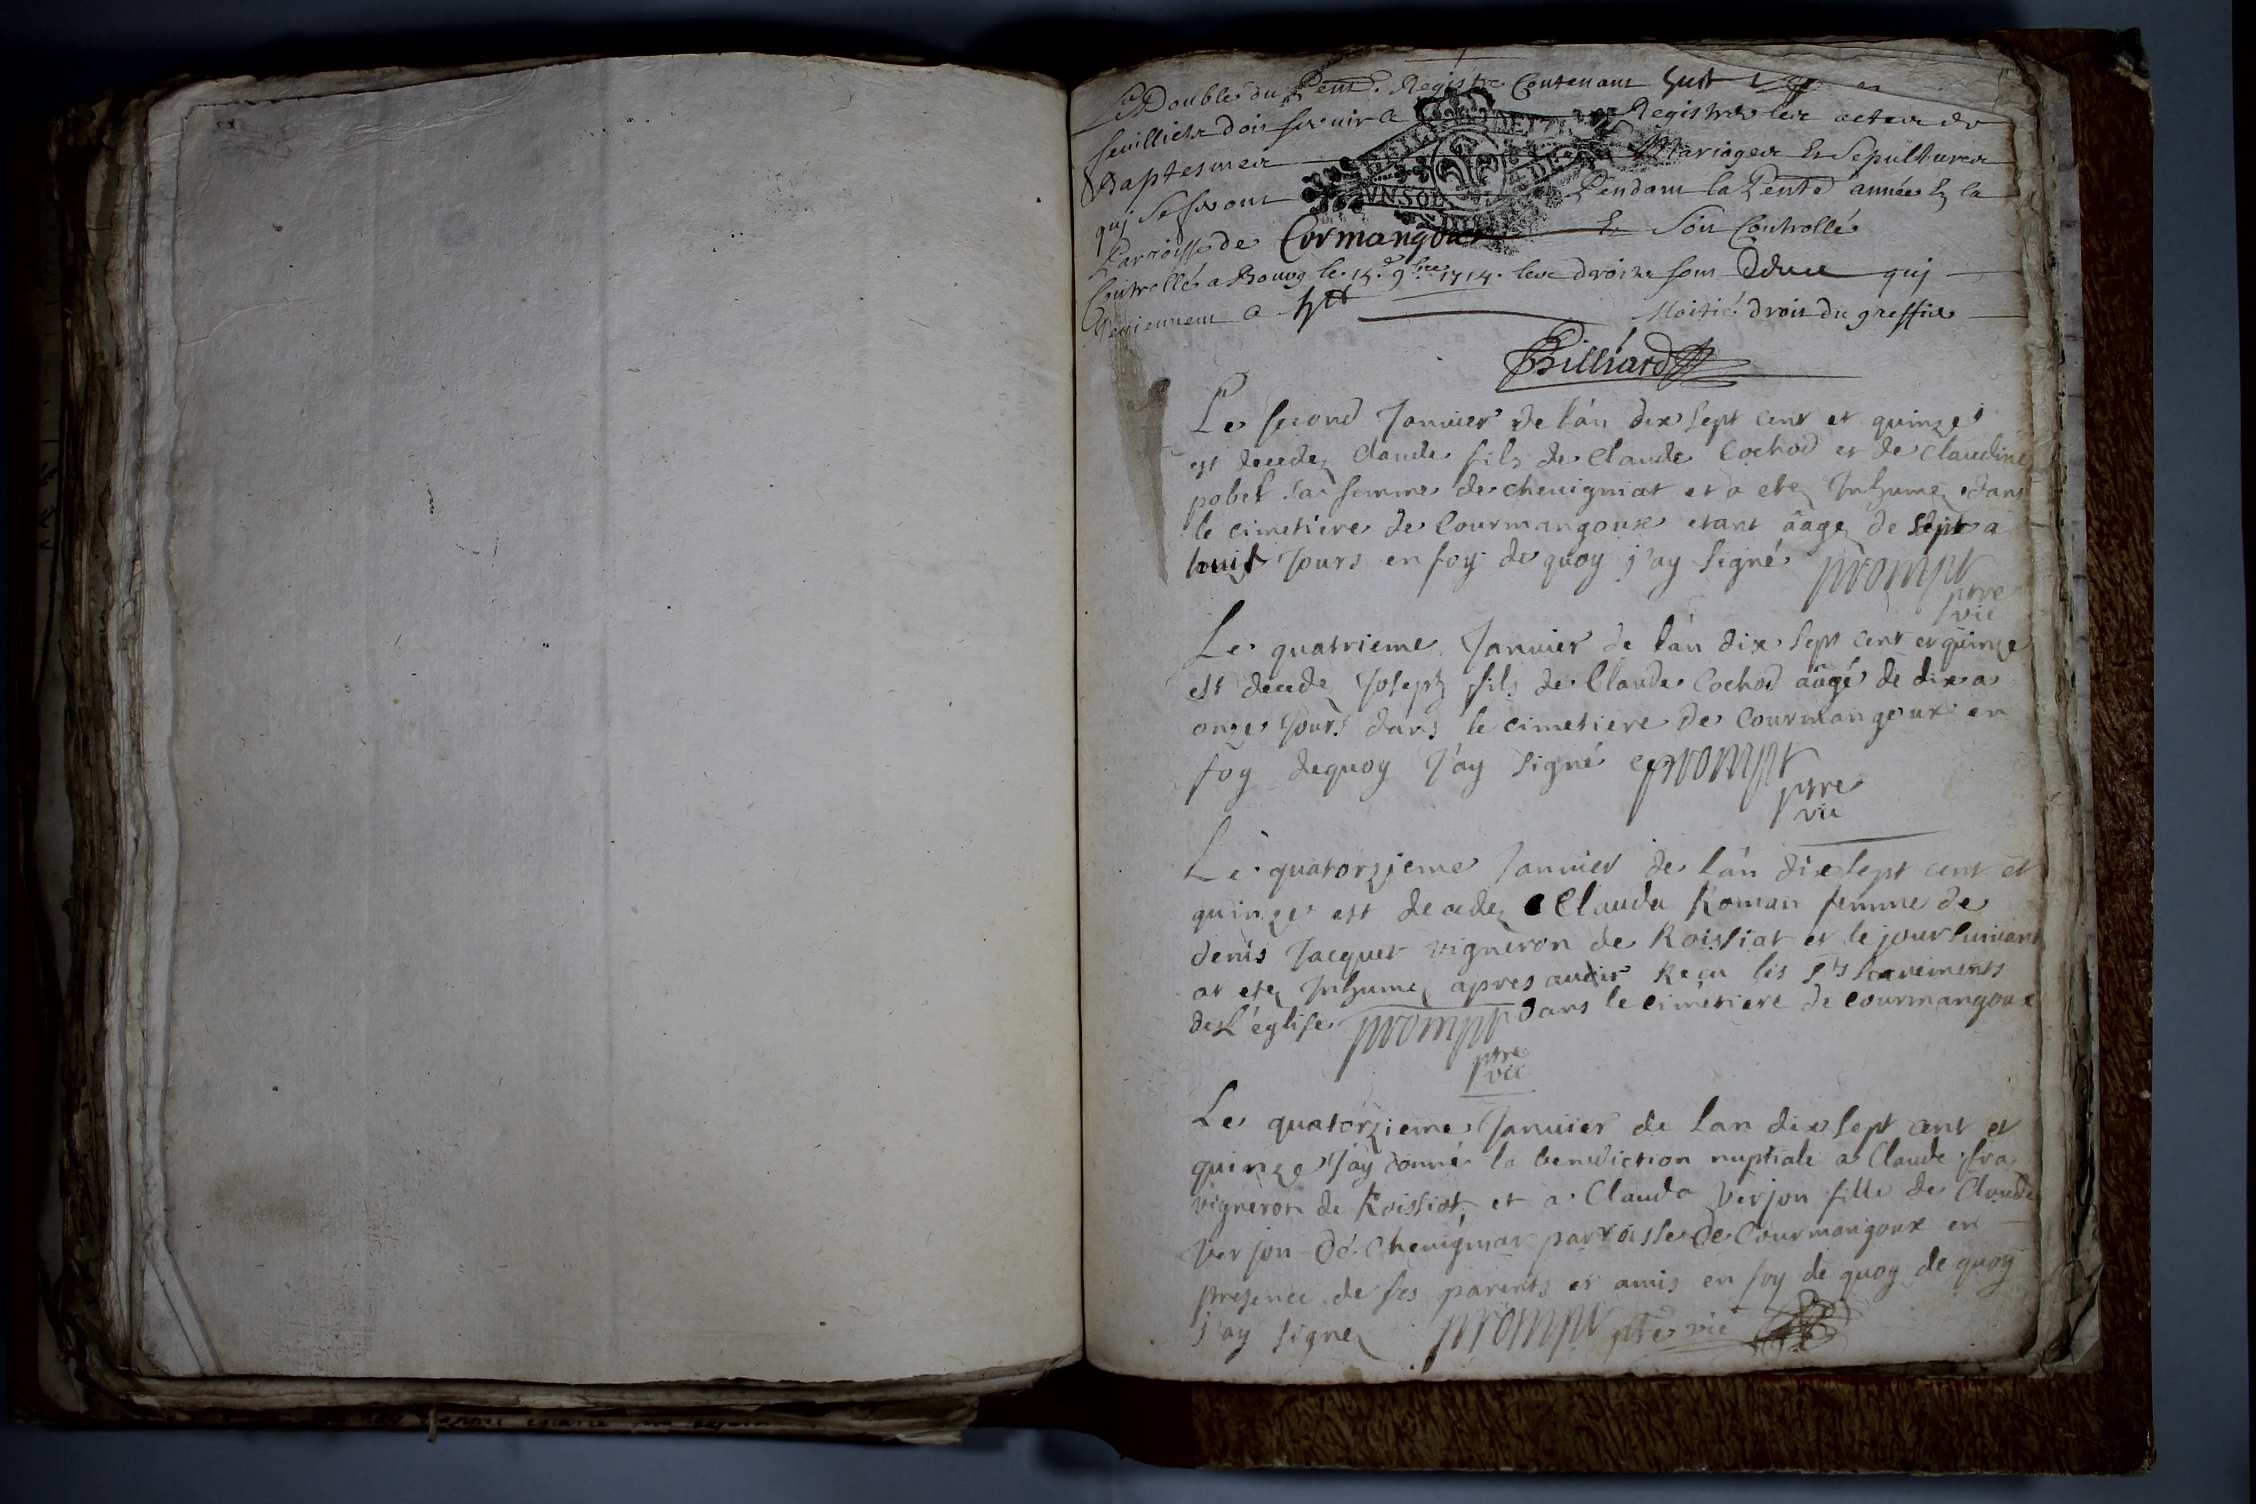 Le Double du Pent. Registre Contenant huit
feuillets doit servir a Registrer les actes de
Baptesmes Mariages Et Sepultures
qui se feront Pendant la Pente année En la
Parroisse de Cormangoux Et Soit Controllé
Controllé a Bourg le 14.e 9bre 1714. les droits sont deue qui
reviennent a
Moitié droit du greffier
Billiard
Le second Janvier de l'an dix sept cent et quinze
est decedez Claude fils de Claude Cochod et de Claudine
pobel sa femme de chevigniat et a etez Inhumez dans
le cimetiere de Courmangoux etant aage de sept a
huit Jours en foy de quoy j'ay signé prompt
ptre
vic
Le quatrieme Janvier de l'an dix sept cent et quinze
est decedez Joseph fils de Claude Cochod aagé de dix a
onze Jours dans le cimetiere de Courmangoux en
foy dequoy J'ay signé prompt
ptre
vic
Le quatorzieme Janvier de l'an dix sept cent et
quinze est decedez Clauda Roman femme de
denis Jacquet vigneron de Roissiat et le jour suivant
at etez Inhumez apres avoir Reçu les Sts Sacrements
de L'église prompt dans le cimetiere de courmangoux
ptre
vic
Le quatorzieme Janvier de Lan dix sept cent et
quinze J'ay donné la benediction nuptiale a Claude fra
vigneron de Roissiat, et a Clauda Verjon fille de Claude
Verjon de Chevigniat parroisse de Courmangoux en
presence de ses parents et amis en foy de quoy de quoy
j'ay signez prompt ptre vic